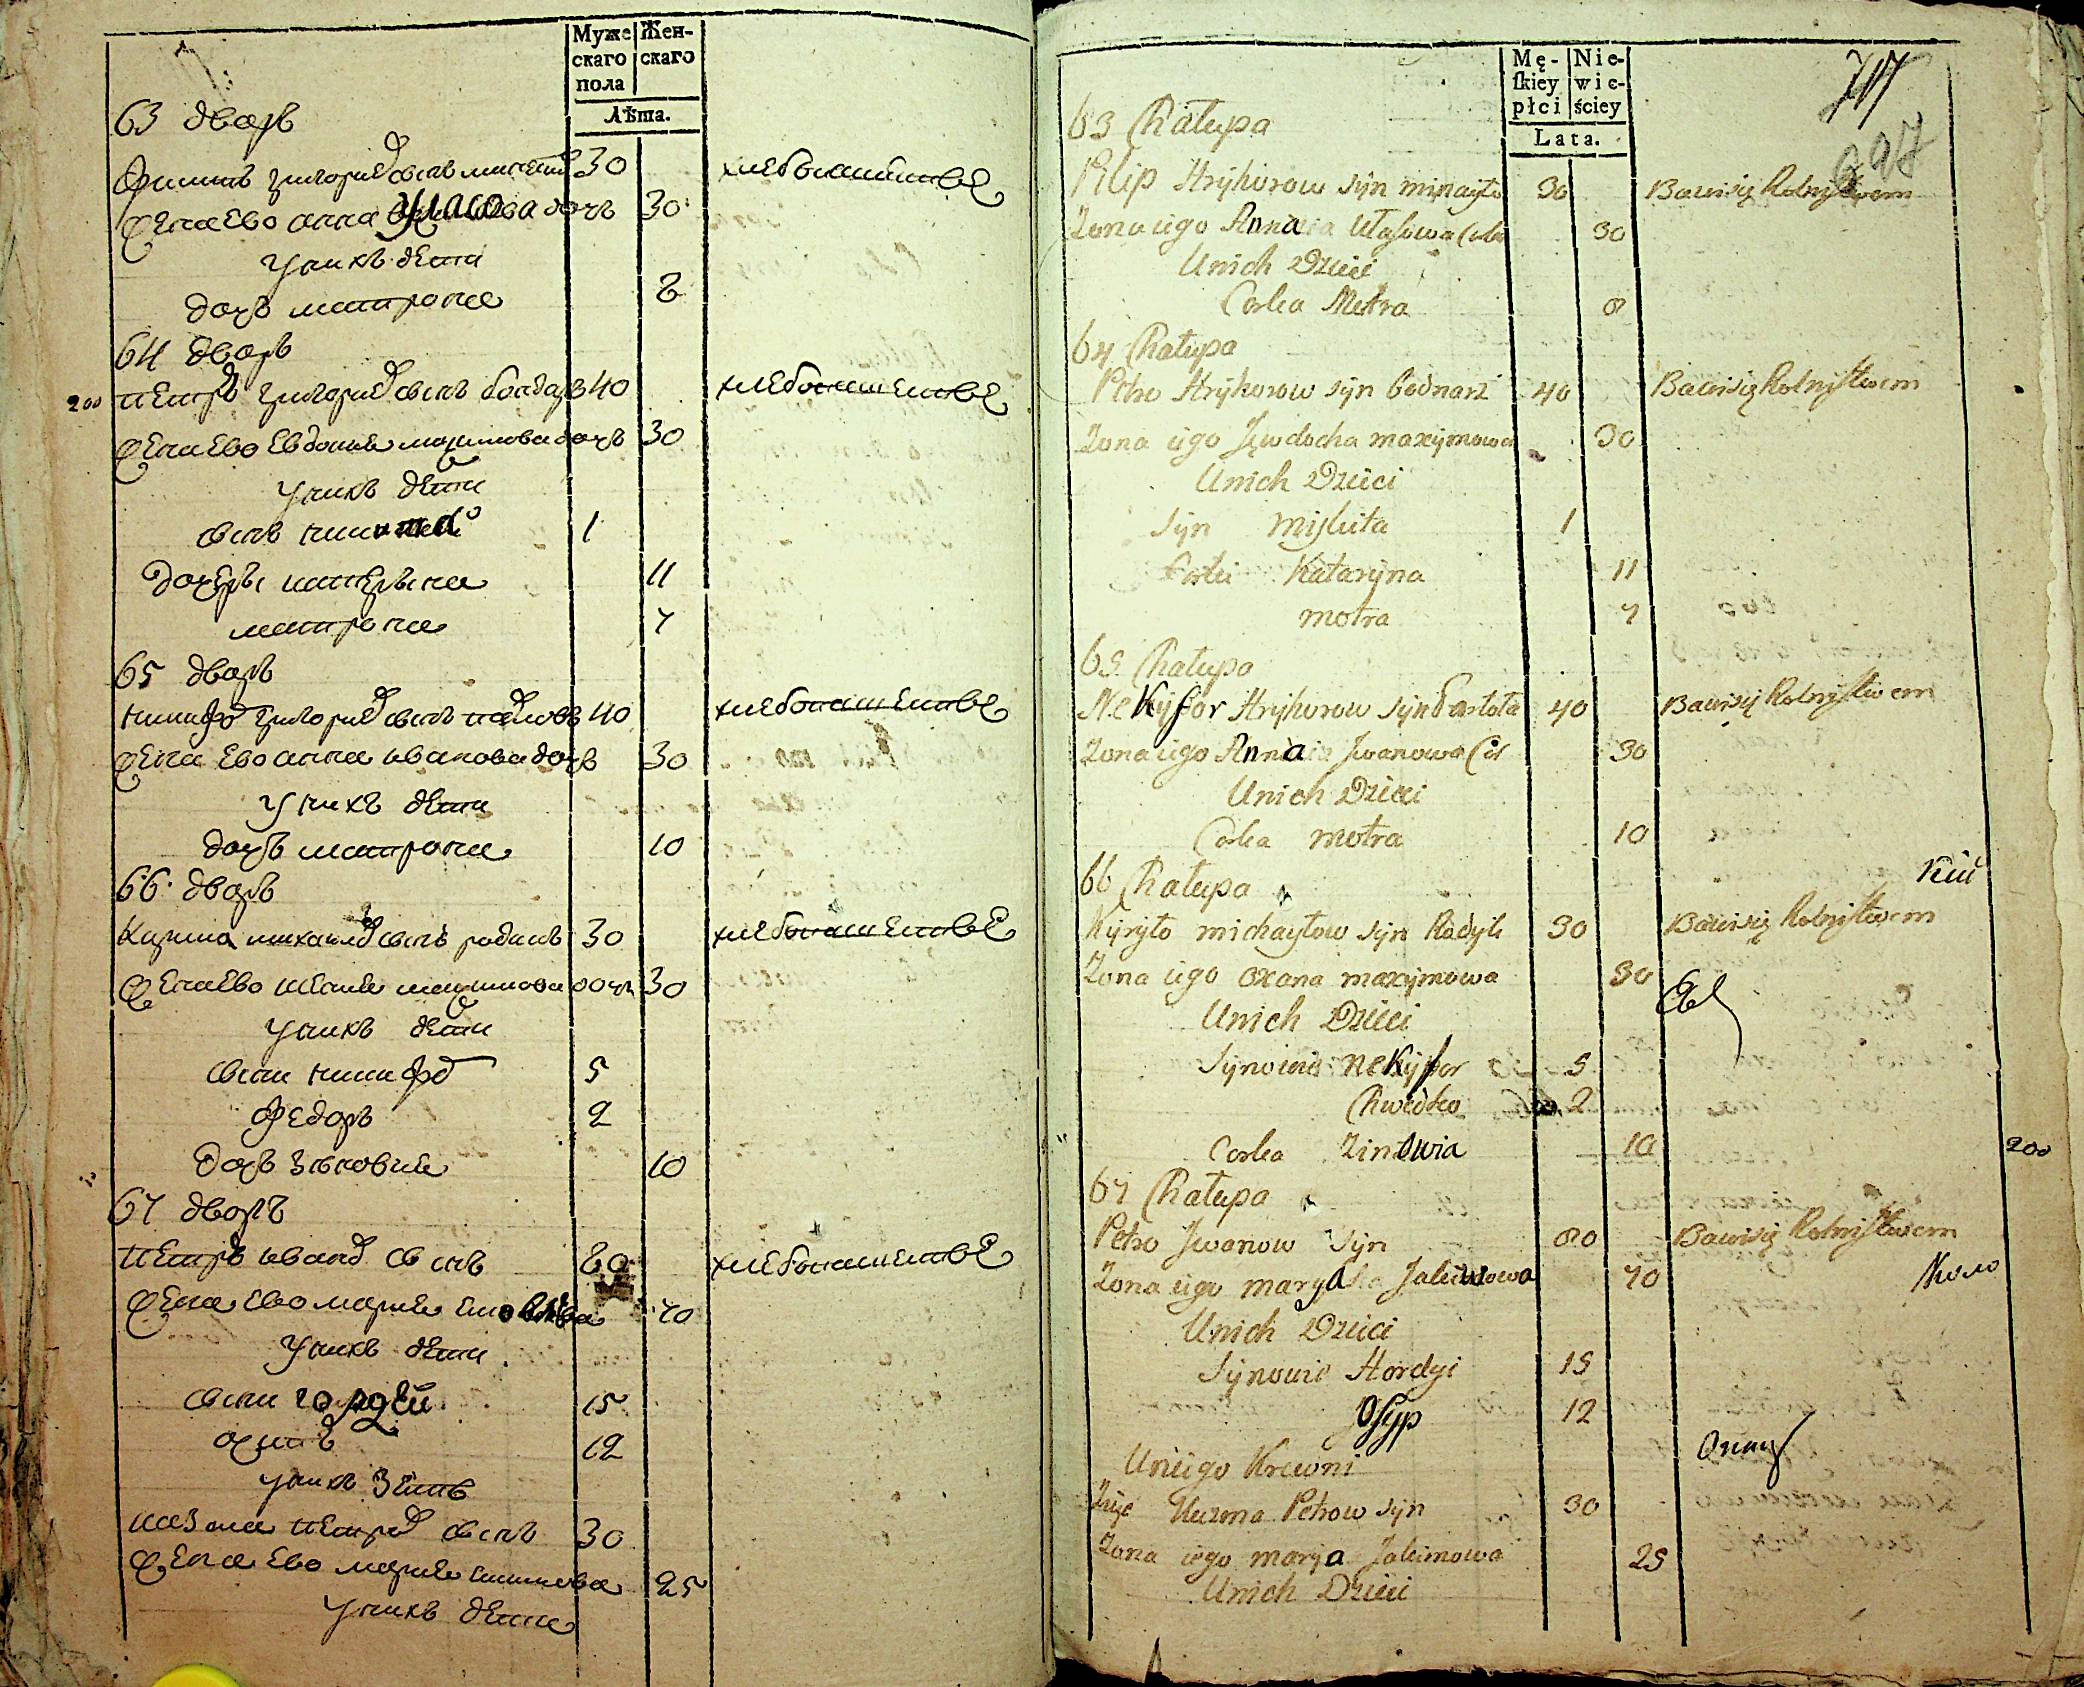 Муже
скаго
пола
Жен-
скаго
Лѣта.
63 дворъ
Филипъ григоріевъ сынъ 30 хлебопашествѣ
жена ево анна власова дочъ 30
у нихъ дети
дочъ матрона 8
64 дворъ
200 петръ григоріевъ сынъ бондаръ 40 хлебопашествѣ
жена ево евдокия максимова дочъ 30
у нихъ дети
сынъ никита 1
дочеры катерына 11
матрона 7
65 дворъ
никифоръ григоріевъ сынъ 40 хлебопашествѣ
жена ево анна иванова дочъ 30
у нихъ дети
дочъ матрона 10
66 дворъ
Кирила михайловъ сынъ 30 хлебопашествѣ
жена ево максимова дочъ 30
у нихъ дети
сыны никифоръ 5
федоръ 2
дочъ зеновия 10
67 дворъ
петръ ивановъ сынъ 80 хлебопашествѣ
жена ево мария 70
у нихъ дети
сыны гордѣй 15
12
у нихъ зять
козма петровъ сынъ 30
жена ево мария 25
у нихъ дети
Mę-
skiey
płci
Nie-
wie-
ściey
Lata.
63 Chałupa
Pilip Hryhorow syn 30 Bawisię Rolnistwem
Zona iego Anna Własowa 30
Unich Dzieci
Corka Motra 8
64 Chałupa
Petro Hryhorow syn Bodnarz 40 Bawisię Rolnistwem
Zona iego Jewdocha maxymowa 30
Unich Dzieci
Syn Mykita 1
Corki Kataryna 11
motra 7
65 Chałupa
Nekyfor Hryhorow syn 40 Bawisię Rolnistwem
Zona iego Anna Jwanowa Cór 30
Unich Dzieci
Corka motra 10
66 Chałupa
Kiryło michayłow syn 30 Bawisię Rolnistwem
Zona iego oxana maxymowa 30
Unich Dzieci
Synowie nekyfor 5
Chwedko 2
Corka Zinowia 10
200
67 Chałupa
Petro Jwanow Syn 80 Bawisię Rolnistwem
Zona iego marya 70
Unich Dzieci
Synowie Hordyi 15
Osyp 12
Uniego Krewni
Zięć Kuzma Petrow syn 30
Zona iego marya Jakimowa 25
Unich Dzieci